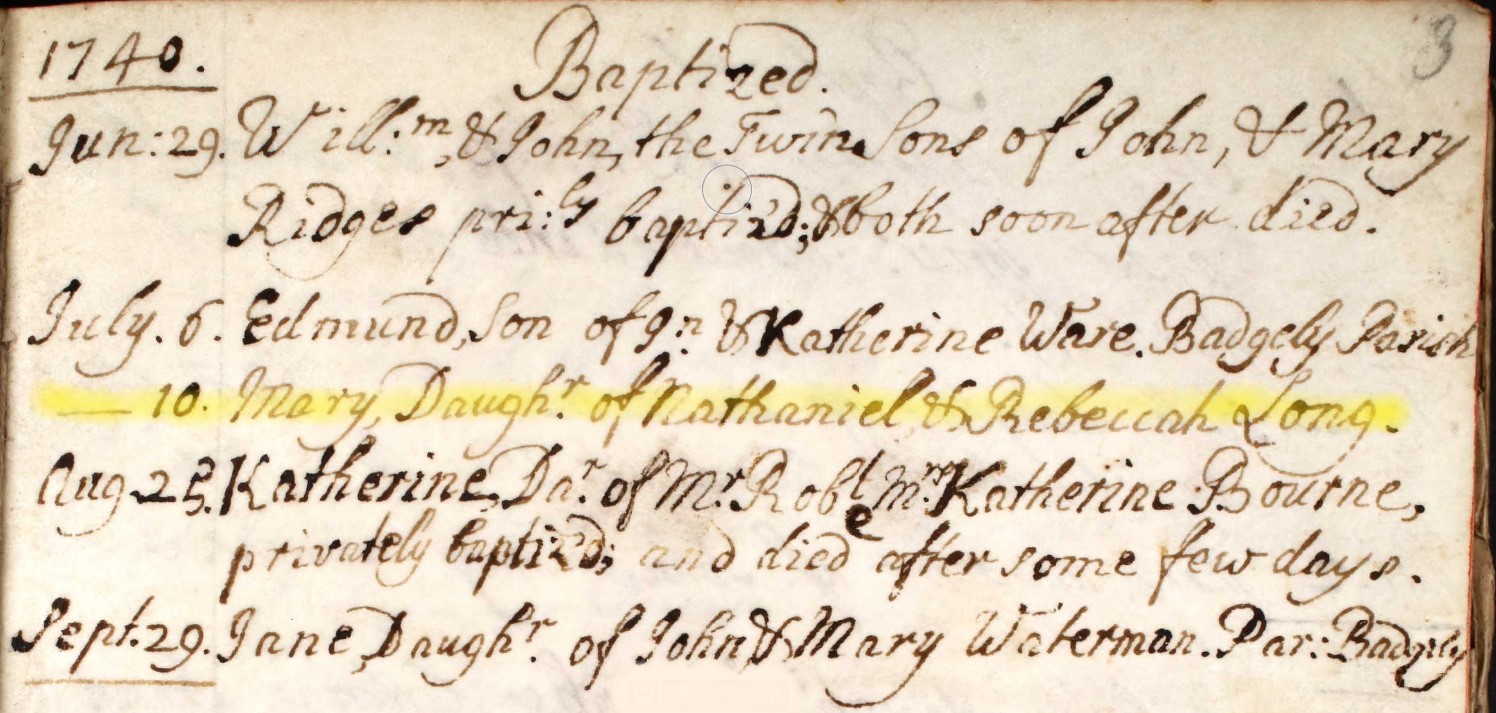 3
1740. Baptized.
Jun: 29. Will:m, & John, the Twin Sons of John, & Mary
Ridges pri:ly baptiz'd; & both soon after died.
July. 6. Edmund, Son of Jn: & Katherine Ware. Badgely Parish
— 10. Mary, Daughr. of Nathaniel & Rebeccah Long.
Aug. 25. Katherine, Dar. of Mr. Robt e Mrs. Katherine Bourne,
privately baptiz'd; and died after some few days.
Sept. 29. Jane, Daughr. of John, & Mary Waterman. Par: Badgely